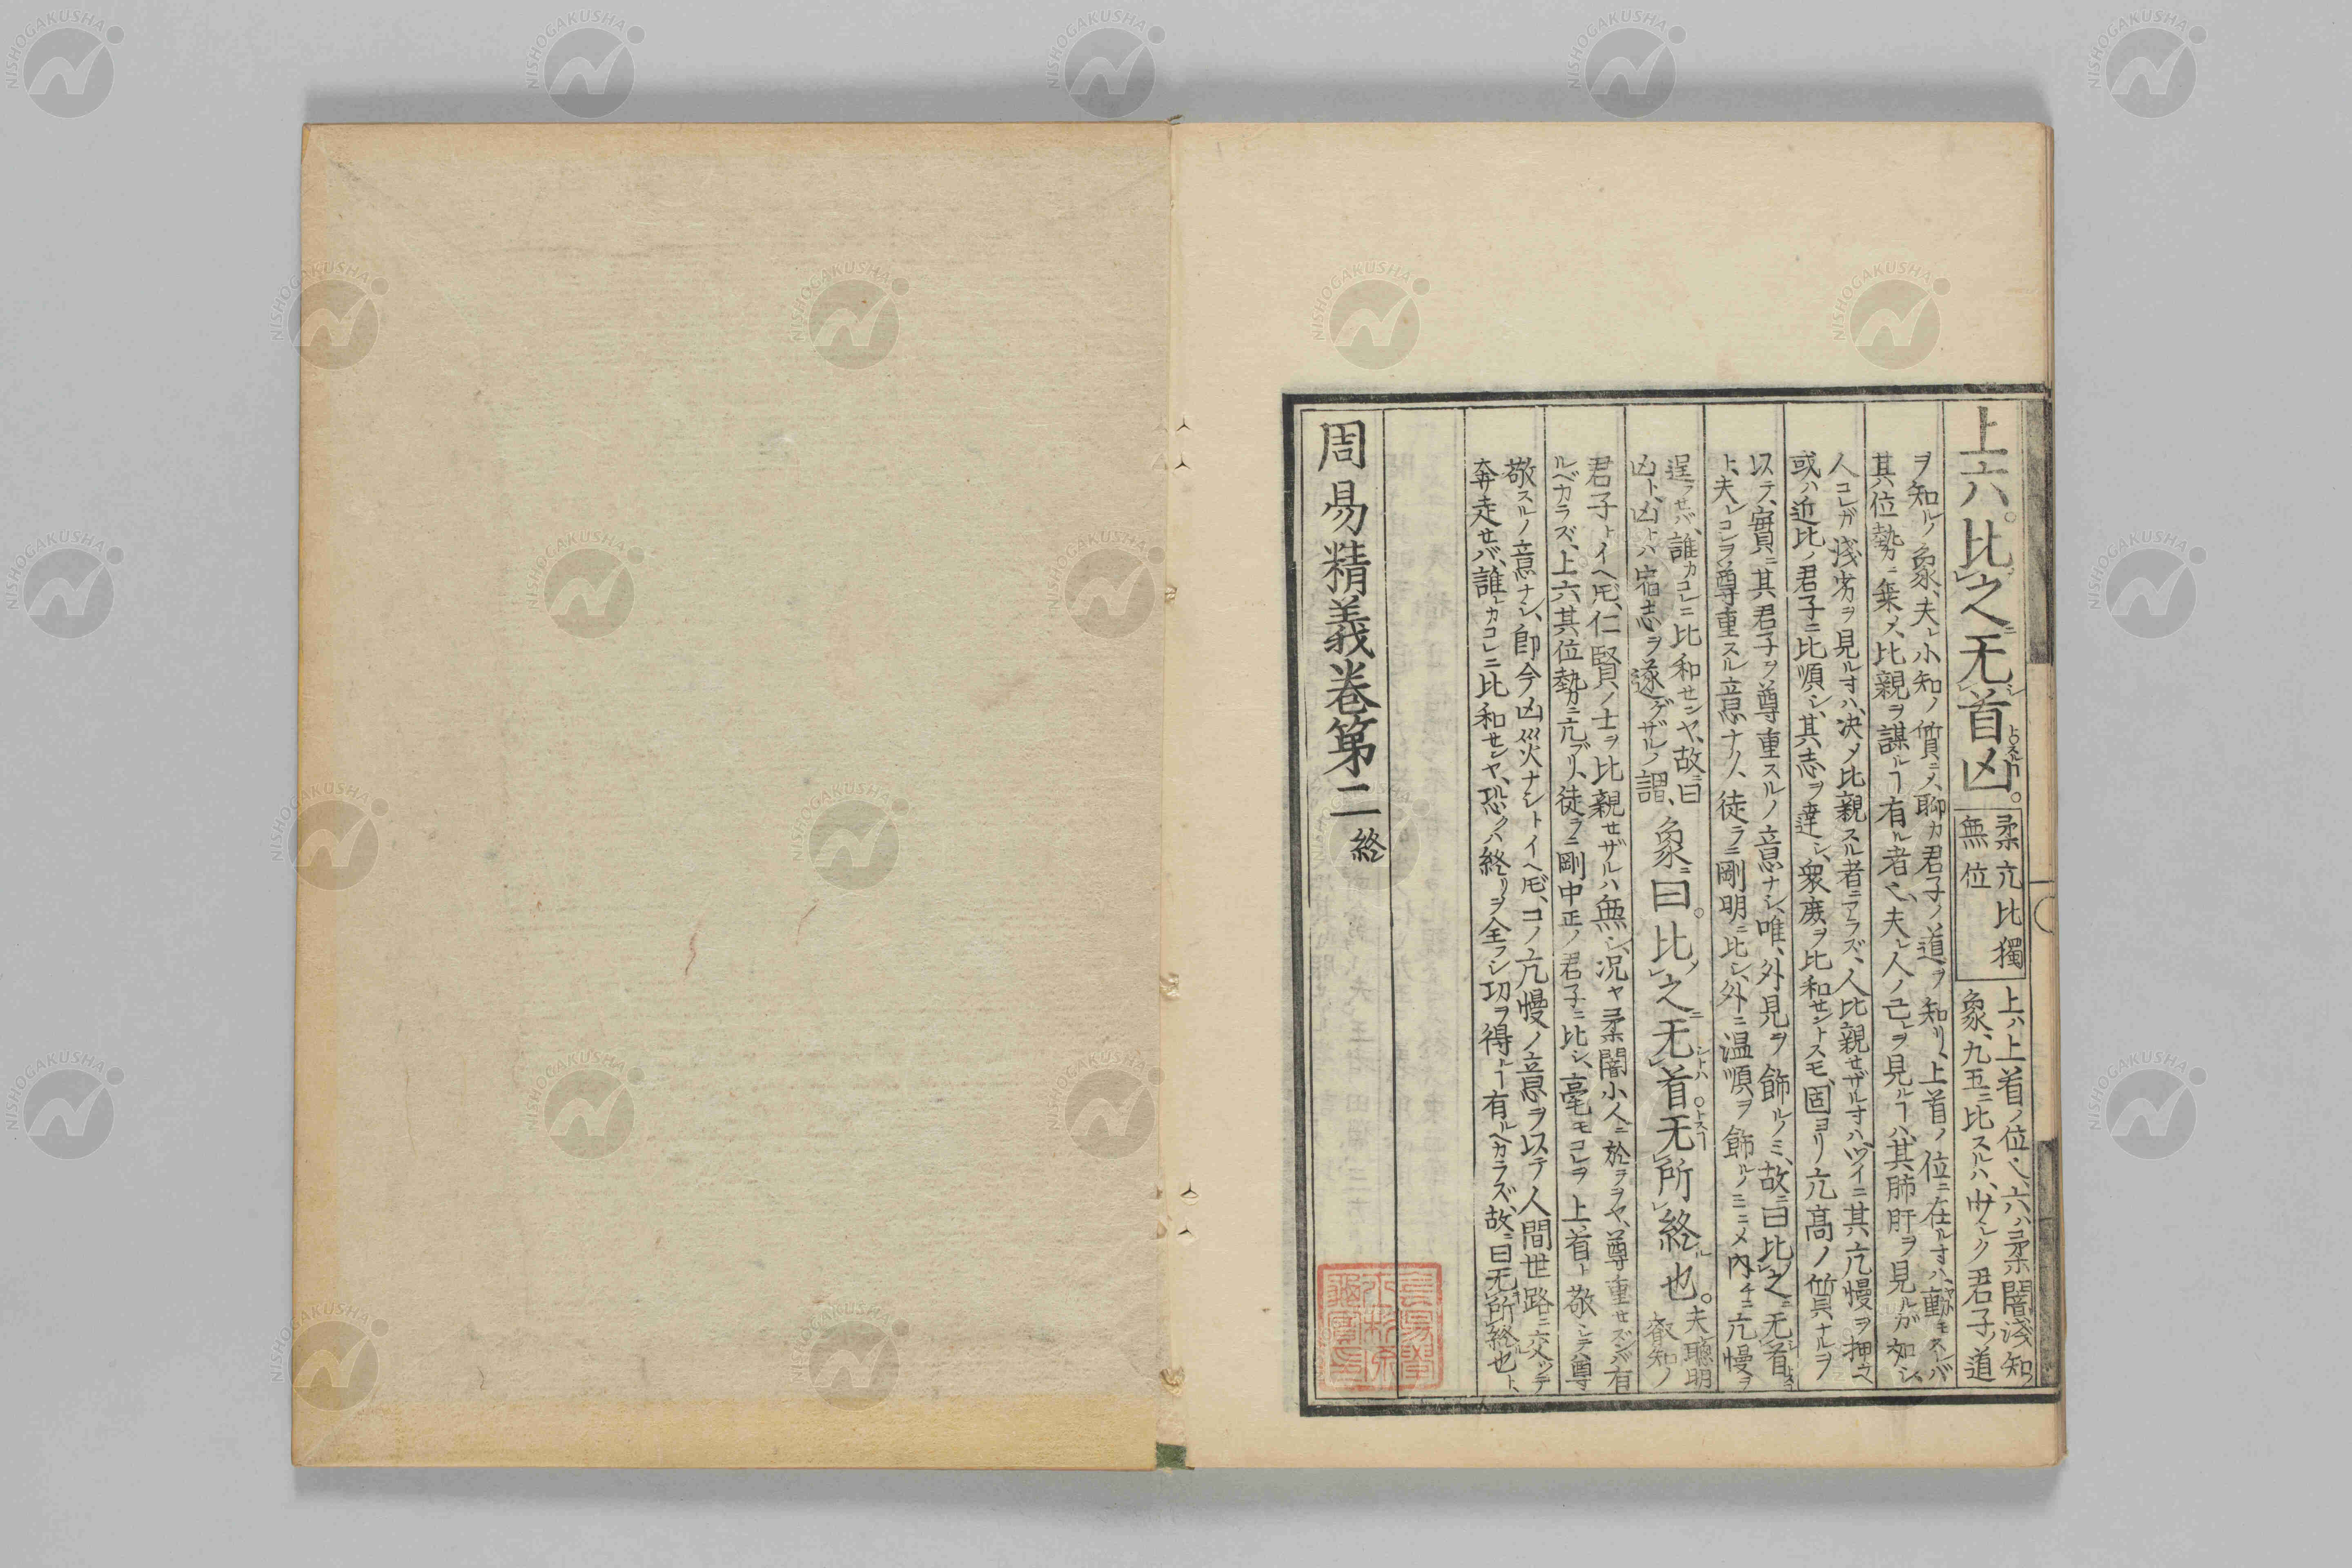 上六。比之无首凶。
柔亢比獨
無位
上ハ上首ノ位也、六ハ柔闇淺知ノ
象、九五ニ比スルハ、少シク君子ノ道
ヲ知ルノ象、夫レ小知ノ質ニメ、聊カ君子ノ道ヲ知リ、上首ノ位ニ在ルオハ、動モスレバ
其位勢ニ乗メ、比親ヲ謀ルヿ有ル者也、夫レ人ノ己レヲ見ルヿハ、其肺肝ヲ見ルガ如シ、
人コレガ淺劣ヲ見ルオハ、决メ比親スル者ニアラズ、人比親セザルオハ、ツイニ其亢慢ヲ押ヘ
或ハ近比ノ君子ニ比順シ、其志ヲ達シ、衆庶ヲ比和セントスモ、固ヨリ亢髙ノ質ナルヲ
以テ、實ニ其君子ヲ尊重スルノ意ナシ、唯、外見ヲ飾ルノミ、故ニ曰比之无首
ト、夫レコレヲ尊重スル意ナク、徒ラニ剛明ニ比シ、外ニ温順ヲ飾ルノミニメ、内チニ亢慢ヲ
逞フセバ、誰カコレニ比和センヤ、故ニ曰
凶ト、凶トハ宿志ヲ遂ゲザルノ謂、
象曰。比之无首无所終也。
夫聰明
叡知ノ
君子トイヘ𪜈、仁賢ノ士ヲ比親セザルハ無シ、况ヤ柔闇小人ニ於ヲヲヤ、尊重セズンバ有
ルベカラズ、上六其位勢ニ亢ブリ、徒ラニ剛中正ノ君子ニ比シ、毫モコレヲ上首ト敬シテ尊
敬スルノ意ナシ、即今凶災ナシトイヘ𪜈、コノ亢慢ノ意ヲ以テ人間世路ニ交ツテ
奔走セバ、誰レカコレニ比和センヤ、恐クハ終リヲ全フシ功ヲ得ルヿ有ルヘカラズ、故ニ曰无所終也ト、
周易精義卷第二終